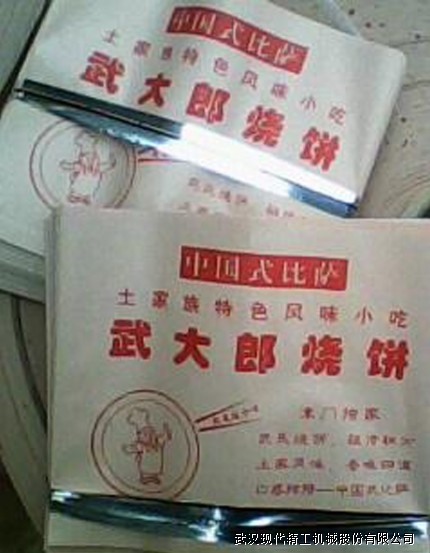 中国式比萨
土家族特色风味小吃
武大郎烧饼
中国式比萨
土家族特色风味小吃
武大郎烧饼
独家
土家风味、香味四溢
——中国式比萨
武汉现代精工机械股份有限公司